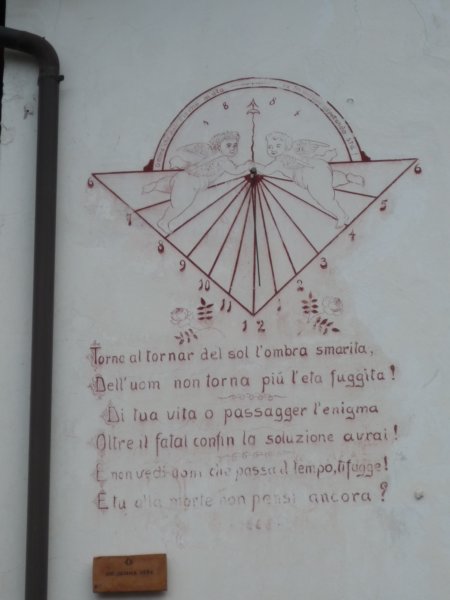 8 8
6 6
7 5
8 4
9 3
10 2
11 1
12
Torna al tornar del sol l'ombra smarita,
Dell'uom non torna più l'eta fuggita!
Di tua vita o passagger l'enigma
Oltre il fatal confin la soluzione avrai!
E non vedi ogni che passa il tempo, ti fugge!
E tu alla morte non pensi ancora?